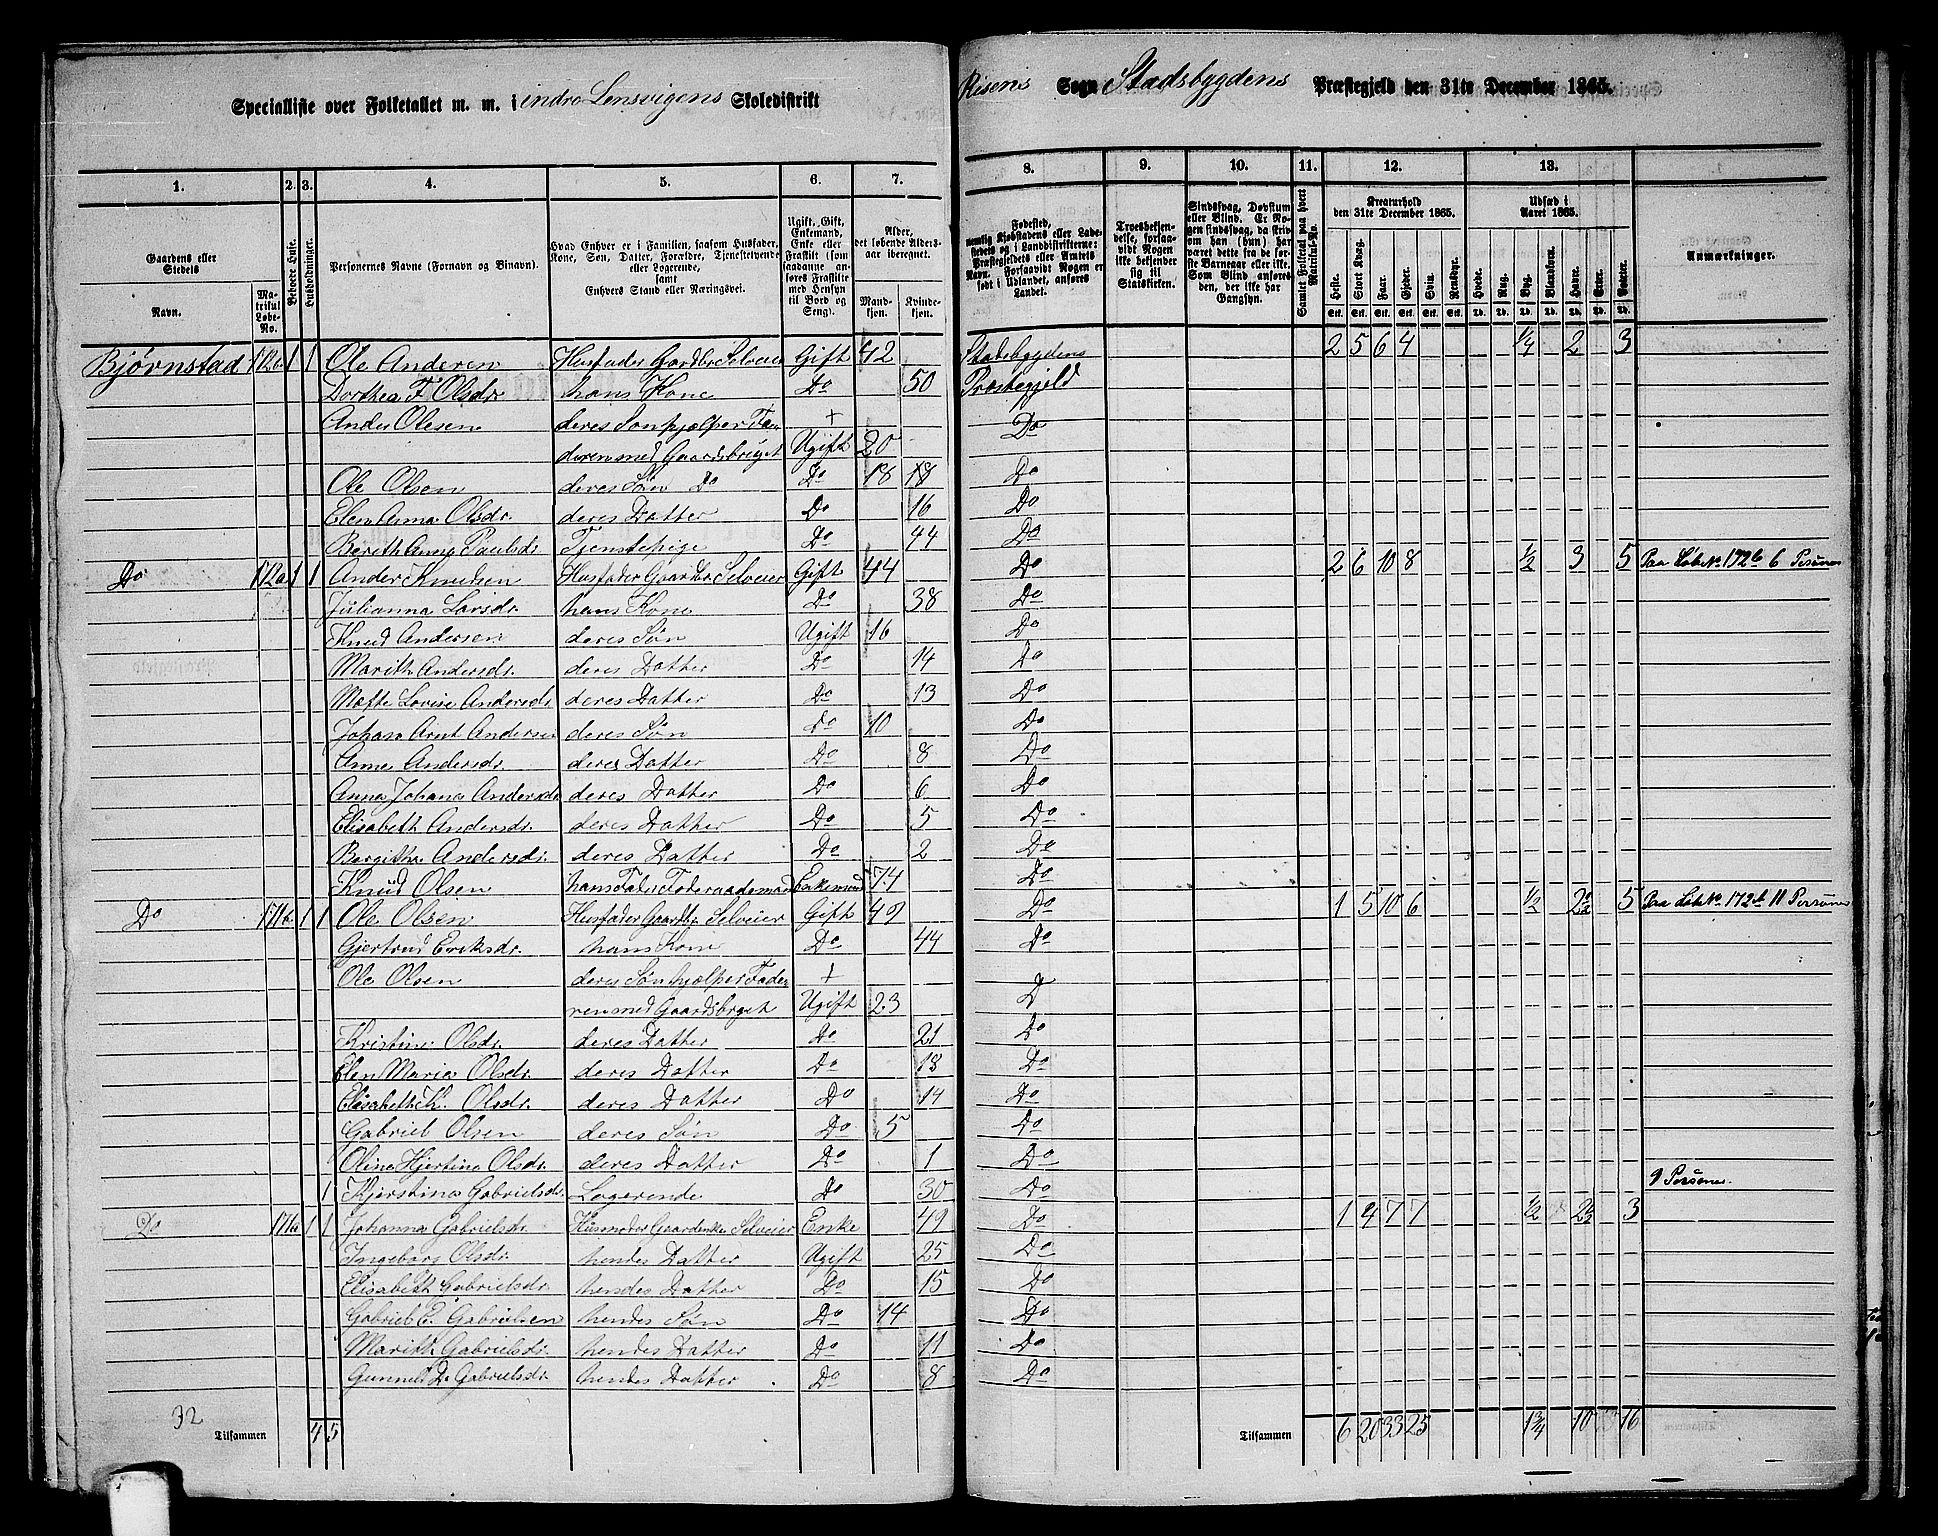 Specialliste over Folketallet m. m. i indre Lensvigens Skoledistrikt Risens Sogn Stadsbygdens Præstegjeld den 31te December 1865.
1. 2. 3. 4. 5. 6. 7. 8. 9. 10. 11. 12. 13.
Gaardens eller Stedets
Navn. Matrikul Løbe-No.
Beboede Huse.
Husholdninger.
Personernes Navne (Fornavn og Binavn).
Hvad Enhver er i Familien, saasom Husfader, Kone, Søn, Datter, Forældre, Tjenestetyende eller Logerende, samt Enhvers Stand eller Næringsvei.
Ugift, Gift, Enkemand, Enke eller Fraskilt (som saadanne anføres Fraskilte med Hensyn til Bord og Seng).
Alder, det løbende Aldersaar iberegnet.
Mandkjøn. Kvindekjøn.
Fødested, nemlig Kjøbstadens eller Ladestedets og i Landdistrikterne: Præstegjeldets eller Amtets Navn. Forsaavidt Nogen er født i Udlandet, anføres Landet.
Troesbekjendelse, forsaavidt Nogen ikke bekjender sig til Statskirken.
Sindssvag, Døvstum eller Blind. Er Nogen sindssvag, da skrives, om han (hun) har været dette fra de første Barneaar eller ikke. Som Blind anføres den, der ikke har Gangsyn.
Samlet Folketal paa hvert Matrikul-No.
Kreaturhold den 31te December 1865.
Heste. Stort Kvæg. Faar. Gjeder. Svin. Rensdyr.
Udsæd i Aaret 1865.
Hvede. Rug. Byg. Blandkorn. Havre. Erter. Poteter.
Anmærkninger.
Bjørnstad 1 1 Ole Anderen Husfader Gaardbr Selveier Gift 42 Stadsbygdens 2 5 6 4 1/4 2 3
Dorthea F Olsdr hans Kone Do 50 Præstegjeld
Ander Olesen deres Søn hjelper Fa + Do
deren med Gaardsbruget Ugift 20
Ole Olsen deres Søn Do Do 18 18 Do
Elen Anna Olsdr. deres Datter Do 16 Do
Bereth Anna Paulsdr Tjenstepige Do 44 Do
Do 172a 1 1 Ander Knudsen Husfader Gaardbr Selveier Gift 44 Do 2 6 10 8 1/2 3 5 Paa Løb No 172b 6 Personer
Julianna Larsdr. hans Kone Do 38 Do
Knud Andersen deres Søn Ugift 16 Do
Marith Andersdr. deres Datter Do 14 Do
Matte Lovise Andersdr deres Datter Do 13 Do
Johan Arnt Andersen deres Søn do 10 Do
Anne Andersdr. deres Datter Do 8 Do
Anna Johana Andersdr deres Datter Do 6 Do
Elisabeth Andersdr. deres Datter Do 5 Do
Bergitha Andersdr. deres Datter Do 2 Do
Knud Olsen hans Fader Føderaadsmand Enkemand 74 Do
Do 1 1 Ole Olsen Husfader Gaardbr Selveier Gift 49 Do 1 5 10 6 1/2 2 1/2 5 Paa Løb No 172 11 Personer
Gjertrud Eriksdr. hans Kone Do 44 Do
Ole Olsen deres Søn hjælper Fade +
ren med Gaardsbruget Ugift 23 D
Kristine Olsdr. deres Datter Do 21 Do
Elen Maria Olsdr. deres Datter Do 18 Do
Elisabeth K. Olsdr. deres Datter Do 14 Do
Gabriel Olsen deres Søn Do 5 Do
Olina Hjertina Olsdr. deres Datter Do 1 Do
1 Kjerstina Gabrielsdr. Logerende Do 30 Do 9 Personer.
Do 1 1 Johanna Gabrielsdr. Husmoder Gaardenke Selveier Enke 49 Do 1 4 7 7 1/2 2 1/2 3
Ingeborg Olsdr. hendes Datter Ugift 25 Do
Elisabeth Gabrielsdr. hendes Datter Do 15 Do
Gabriel E. Gabrielsen hendes Søn Do 14 Do
Marith Gabrielsdr. hendes Datter Do 11 Do
Gunneld D Gabrielsdr. hendes Datter Do 8 Do
32
Tilsammen 4 5 Tilsammen 6 20 33 25 1 3/4 10 16